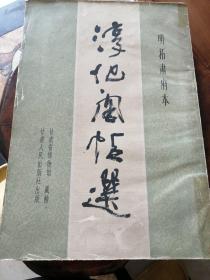 明拓肃府本
淳化阁帖選
甘肃省博物馆 藏稿
甘肃人民出版社出版